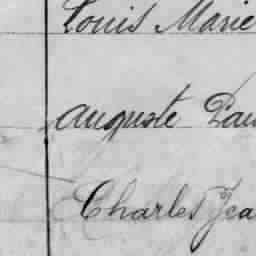 Louis Marie
Auguste Pau
Charles Jea